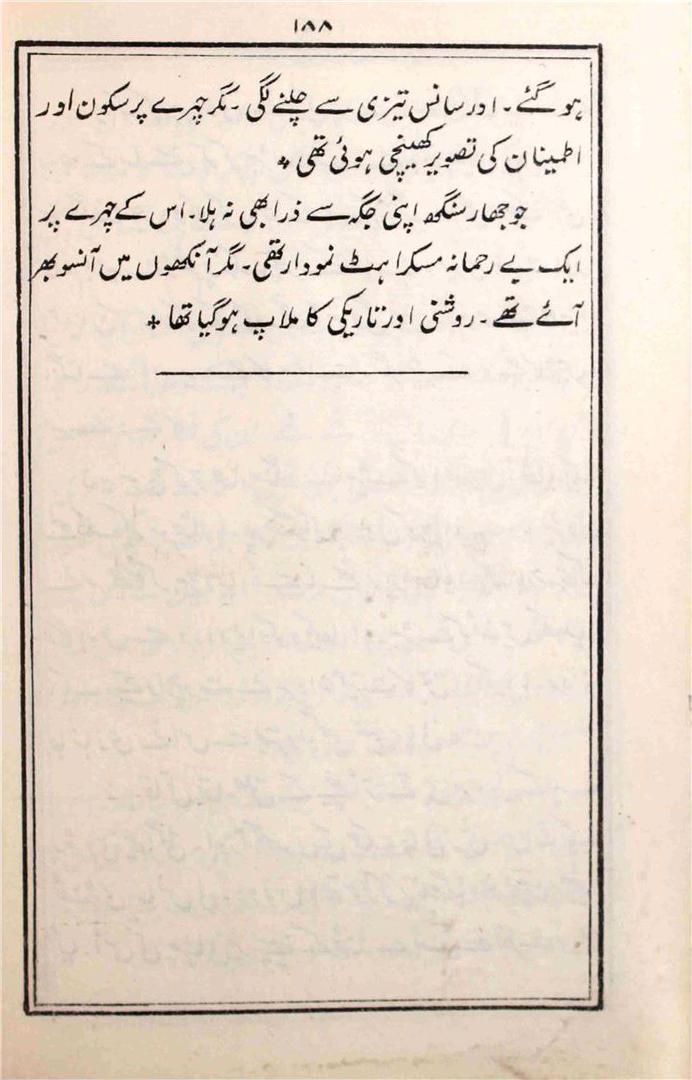 ۱۸۸
ہو گئے۔ اور سانس تیزی سے چلنے لگی۔ مگر چہرے پر سکون اور
اطمینان کی تصویر کھینچی ہوئی تھی ٭
جوجھار سنگھ اپنی جگہ سے ذرا بھی نہ ہلا۔ اس کے چہرے پر
ایک بے رحمانہ مسکراہٹ نمودار تھی۔ مگر آنکھوں میں آنسو بھر
آئے تھے۔ روشنی اور تاریکی کا ملاپ ہو گیا تھا ٭